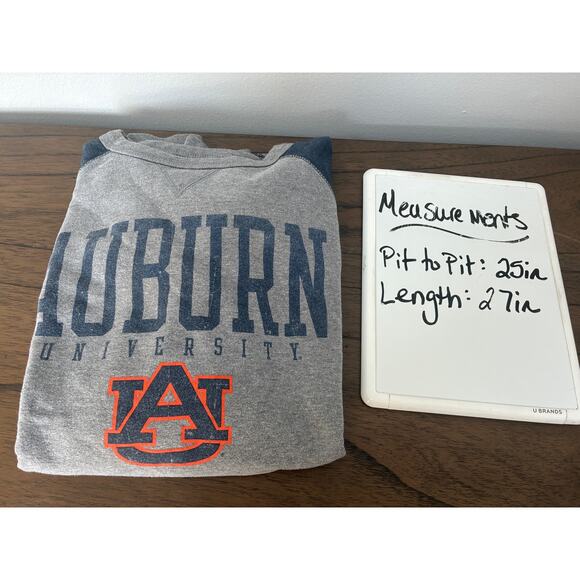 AUBURN
UNIVERSITY.
AU
Measurements
Pit to Pit: 25in
Length: 27in
U BRANDS